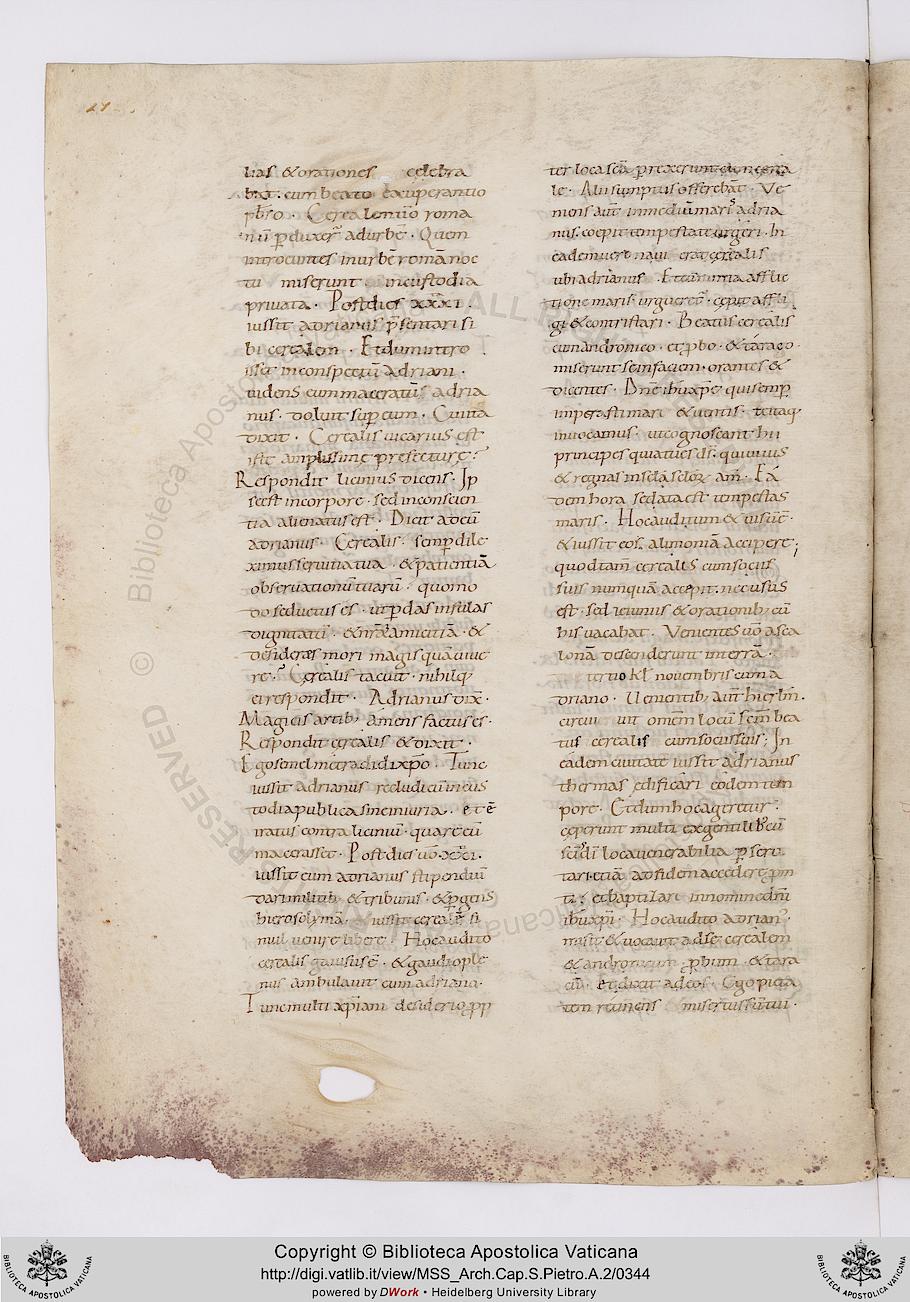 lias & orationes celebra
bat. cum beato exuperantio
pb̄ro. Cerealem u̅o roma
nu̅ p̲duxer̅ ad urbe̅. Quem
introeuntes in urbe̅ romā noc
tu miserunt in custodia
privata. Post dies xxxi.
iussit adrianus p̄sentari si
bi cerealem. Et dum intro
isset in conspectu̅ adriani.
uidens eum maceratu̅ adria
nus. doluit sup̲ eum. Cui ita
dixit. Cerealis uicarius est
iste amplissimę prefecturę?
Respondit licinius dicens. Ip
se est in corpore. sed in conscien
tia alienatus est. Dicit ad eu̅
adrianus. Cerealis. semp̲ dile
ximus seruitia tua. & patientiā
obseruationu̅ tuaru̅. quomo
do seductus es. ut p̲das insulas
dignitatu̅. & nr̄ā amicitiā. &
desideras mori magis quā uiue
re? Cerealis tacuit. nihilq;
ei respondit. Adrianus dix̅.
Magicis artib; amens factus es.
Respondit cerealis & dixit.
Ego semel me tradidi xp̄o. Tunc
iussit adrianus recludi eu̅ in cus
todia publica sine iniuria. et ē
iratus contra liciniu̅. quare eu̅
macerasset. Post dies u̅o xxi.
iussit eum adrianus stipendiu̅
dari militib; & tribunis. & p̲gens
hierosolymā. iussit cerealē si
mul uenire libere. Hoc audito
cerealis gauisus ē. & gaudio ple
nus ambulauit cum adriano.
Tunc multi xp̄iani desiderio p̲p

ter loca sc̄ā prexerunt cum cerea
le. Alii sumptus offerebāt. Ve
niens aut̅ in mediu̅ maris adria
nus. coepit tempestate urgeri. In
eadem uero naui erat cerealis
ubi adrianus. Et cu̅ nimia afflic
tione maris urguer&̅. cępit affli
gi & contristari. Beatus cerealis
cum andronico. et p̲bo. & taraco.
miserunt se in faciem. orantes &
dicentes. Dn̄e ih̄u xp̄e qui semp̲
imperasti mari & uentis. te itaq;
inuocamus. ut cognoscant hii
principes quia tu es d̄s. qui uiuis
& regnas in sc̄lā sc̄lor̅. am̄. Eā
dem hora sedata est tempestas
maris. Hoc auditum & uisu̅ ē.
& iussit eos alimoniā accipere;
quod tam̄ cerealis cum sociis
suis numquā accepit. nec usus
est. sed ieiuniis & orationib; cu̅
his uacabat. Venientes u̅o asca
lonā descenderunt in terrā.
tertio kl̄ novembris cum a
driano. Uenientib; aut̅ hierlm̄.
circuiuit omēm locu̅ sc̄m bea
tus cerealis cum sociis suis; In
eadem ciuitate iussit adrianus
thermas edificari eodem tem
pore. Et dum hoc ageretur.
cęperunt multi ex gentilib; cu̅
loca uenerabilia p̲scru
tari. etiā ad fidem accedere p̲m
ti. & baptizari in nomine dn̄i
ih̄u xp̄i. Hoc audito adrian;
misit & uocauit ad se cerealem
& andronicum. p̲bum. & tara
cu̅. et dixit ad eos. Ego pieta
tem retinens misertus su̅ tui.
Copyright © Biblioteca Apostolica Vaticana
http://digi.vatlib.it/view/MSS_Arch.Cap.S.Pietro.A.2/0344
powered by DWork • Heidelberg University Library
BIBLIOTECA APOSTOLICA VATICANA
BIBLIOTECA APOSTOLICA VATICANA